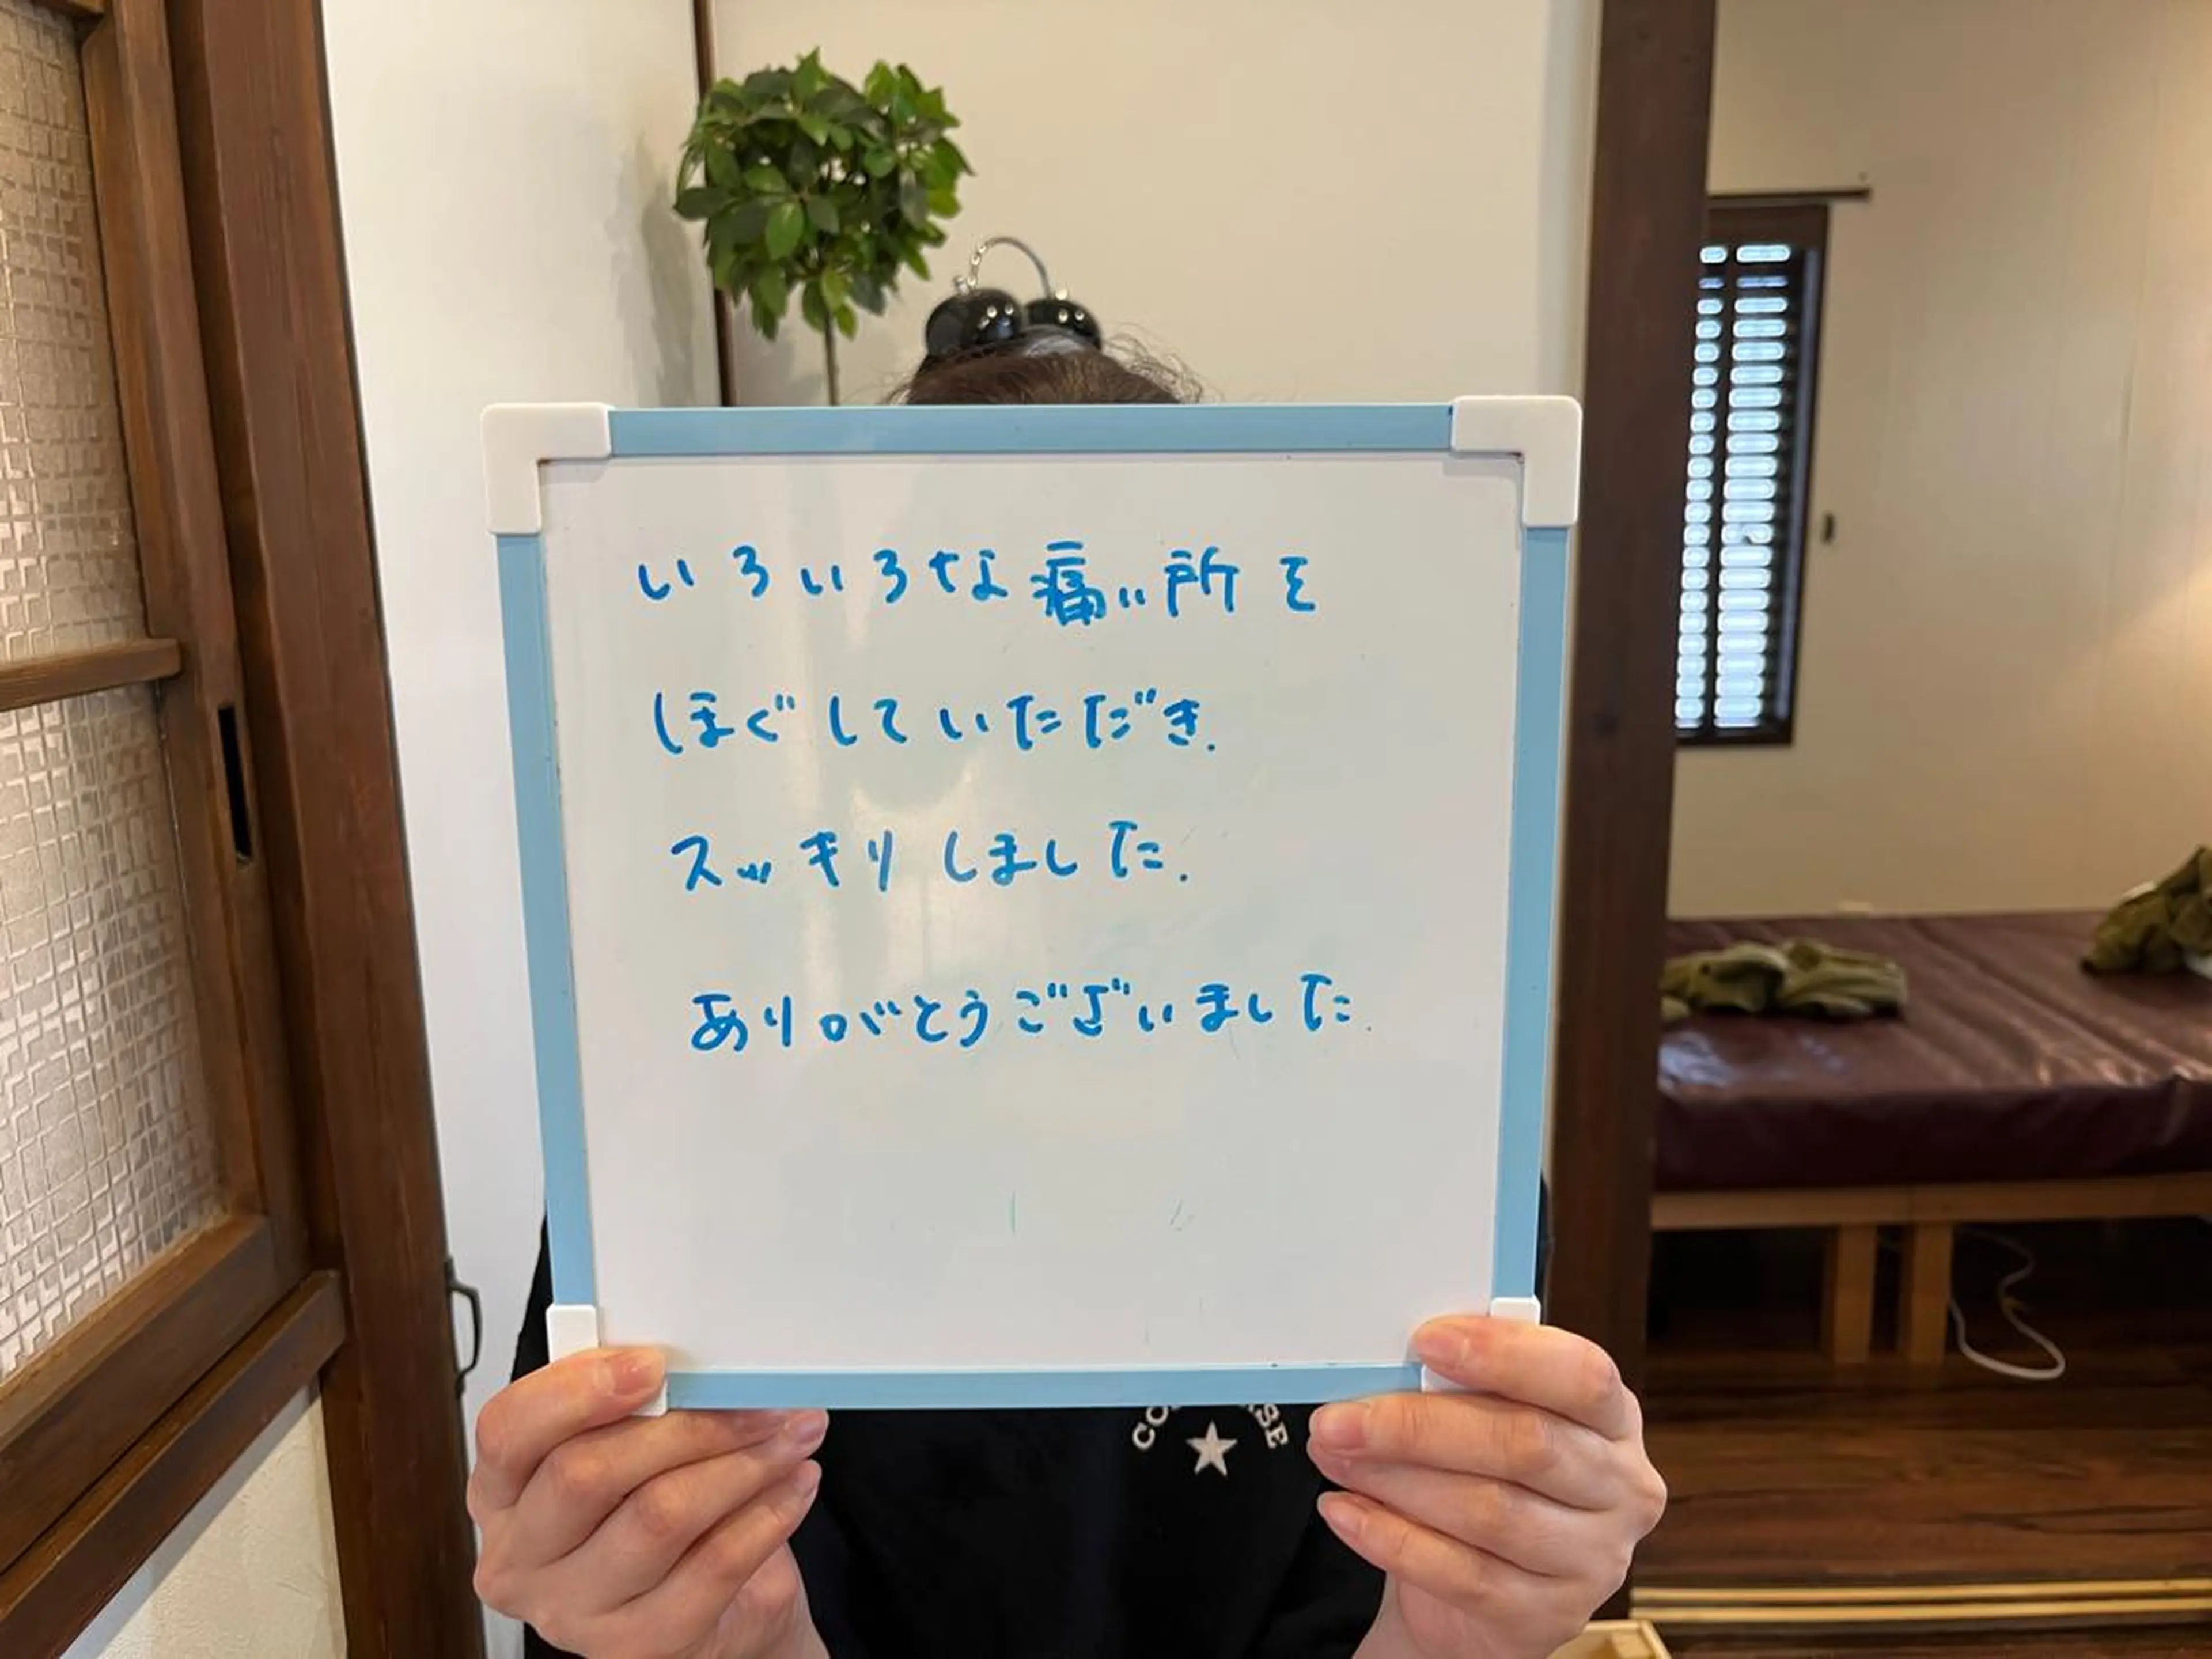 いろいろな痛い所を
ほぐしていただき.
スッキリしました.
ありがとうございました.